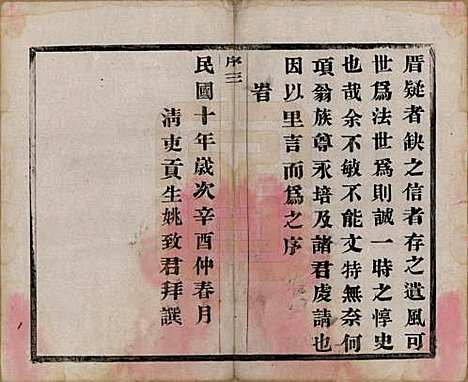 厝疑者缺之信者存之遺風可
世爲法世爲則誠一時之惇史
也哉余不敏不能文特無奈何
項翁族尊永培及諸君虔請也
因以里言而爲之序
岩
序三
民國十年歲次辛酉仲春月
清吏貢生姚致君拜譔